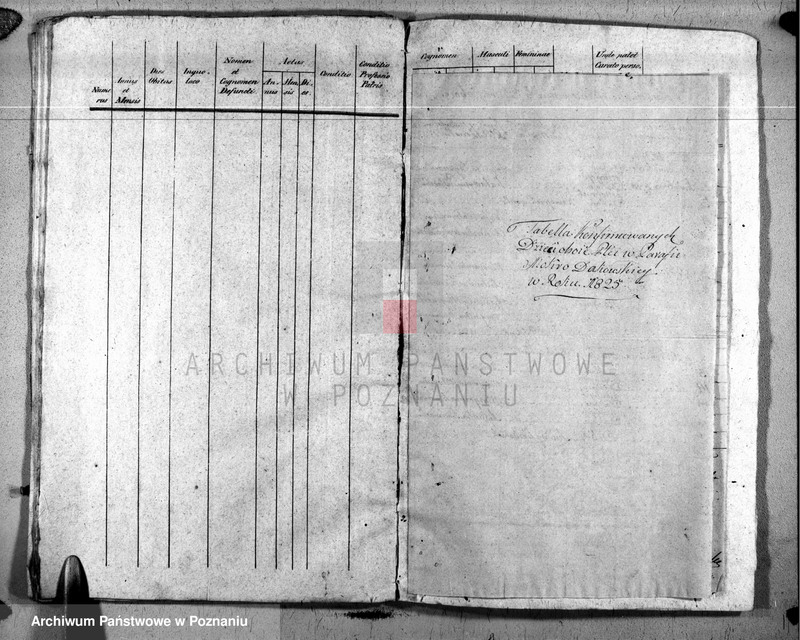 Nume
rus
Annus
et
Mensis
Dies
Obitus
In quo
loco
Nomen
et
Cognomen
Defuncti
Aetas
An.
nus
Men
sis
Di.
es.
Conditio
Conditio
Professio
Patris
Cognomen
Masculi
Femininae
Unde natet
Curato perso.
Tabella konfirmowanych
Dzieci oboiey Płci w Parafii
Dakowskiey.
w Roku 1825
ARCHIWUM PAŃSTWOWE
W POZNANIU
Archiwum Państwowe w Poznaniu